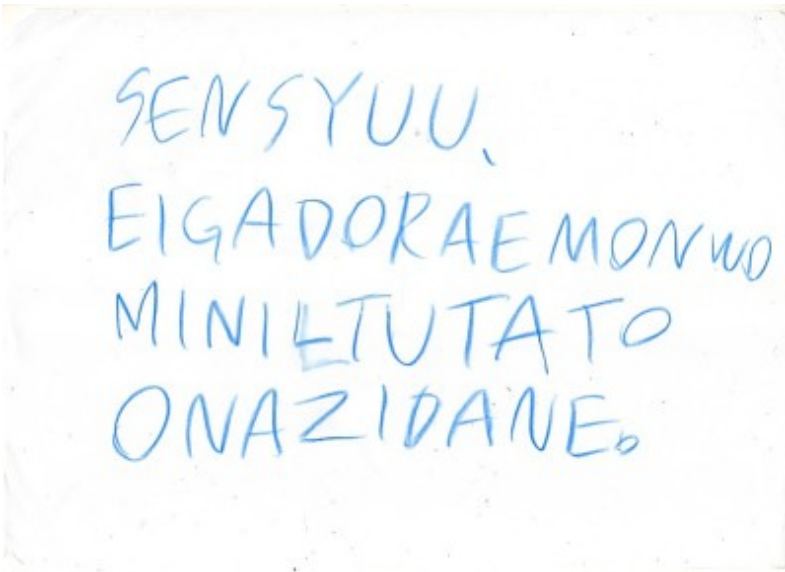 SENSYUU、
EIGADORAEMONWO
MINILTUTATO
ONAZIDANE。